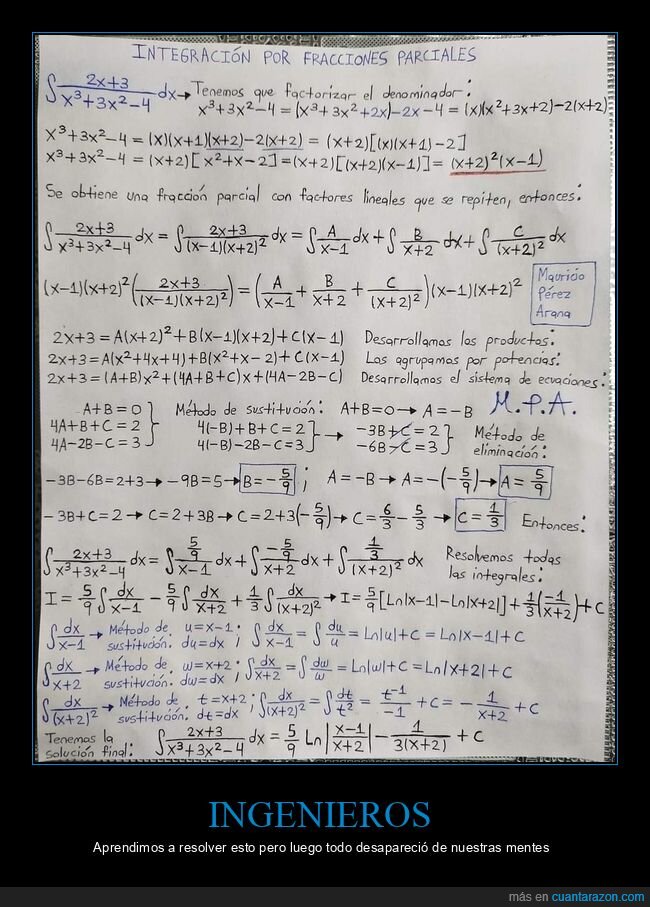 INTEGRACIÓN POR FRACCIONES PARCIALES
∫ (2x+3)/(x³+3x²-4) dx → Tenemos que factorizar el denominador:
x³+3x²-4 = (x³+3x²+2x)-2x-4 = (x)(x²+3x+2)-2(x+2)
x³+3x²-4 = (x)(x+1)(x+2)-2(x+2) = (x+2)[(x)(x+1)-2]
x³+3x²-4 = (x+2)[x²+x-2] = (x+2)[(x+2)(x-1)] = (x+2)²(x-1)
Se obtiene una fracción parcial con factores lineales que se repiten, entonces:
∫ (2x+3)/(x³+3x²-4) dx = ∫ (2x+3)/((x-1)(x+2)²) dx = ∫ A/(x-1) dx + ∫ B/(x+2) dx + ∫ C/(x+2)² dx
(x-1)(x+2)² ((2x+3)/((x-1)(x+2)²)) = (A/(x-1) + B/(x+2) + C/(x+2)²)(x-1)(x+2)²
Mauricio
Pérez
Arana
2x+3 = A(x+2)²+B(x-1)(x+2)+C(x-1) Desarrollamos los productos:
2x+3 = A(x²+4x+4)+B(x²+x-2)+C(x-1) Los agrupamos por potencias:
2x+3 = (A+B)x²+(4A+B+C)x+(4A-2B-C) Desarrollamos el sistema de ecuaciones:
A+B=0 Método de sustitución: A+B=0 → A=-B M.P.A.
4A+B+C=2 4(-B)+B+C=2 → -3B+C=2 Método de
4A-2B-C=3 4(-B)-2B-C=3 -6B-C=3 eliminación:
-3B-6B=2+3 → -9B=5 → B=-5/9 ; A=-B → A=-(-5/9) → A=5/9
-3B+C=2 → C=2+3B → C=2+3(-5/9) → C=6/3-5/3 → C=1/3 Entonces:
∫ (2x+3)/(x³+3x²-4) dx = ∫ (5/9)/(x-1) dx + ∫ (-5/9)/(x+2) dx + ∫ (1/3)/(x+2)² dx Resolvemos todas
las integrales:
I = 5/9 ∫ dx/(x-1) - 5/9 ∫ dx/(x+2) + 1/3 ∫ dx/(x+2)² → I = 5/9 [Ln|x-1|-Ln|x+2|] + 1/3 (-1/(x+2)) + C
∫ dx/(x-1) → Método de sustitución. u=x-1 du=dx ; ∫ dx/(x-1) = ∫ du/u = Ln|u|+C = Ln|x-1|+C
∫ dx/(x+2) → Método de sustitución. w=x+2 dw=dx ; ∫ dx/(x+2) = ∫ dw/w = Ln|w|+C = Ln|x+2|+C
∫ dx/(x+2)² → Método de sustitución. t=x+2 dt=dx ; ∫ dx/(x+2)² = ∫ dt/t² = t⁻¹/-1 + C = -1/(x+2) + C
Tenemos la
solución final: ∫ (2x+3)/(x³+3x²-4) dx = 5/9 Ln|(x-1)/(x+2)| - 1/(3(x+2)) + C
INGENIEROS
Aprendimos a resolver esto pero luego todo desapareció de nuestras mentes
más en cuantarazon.com